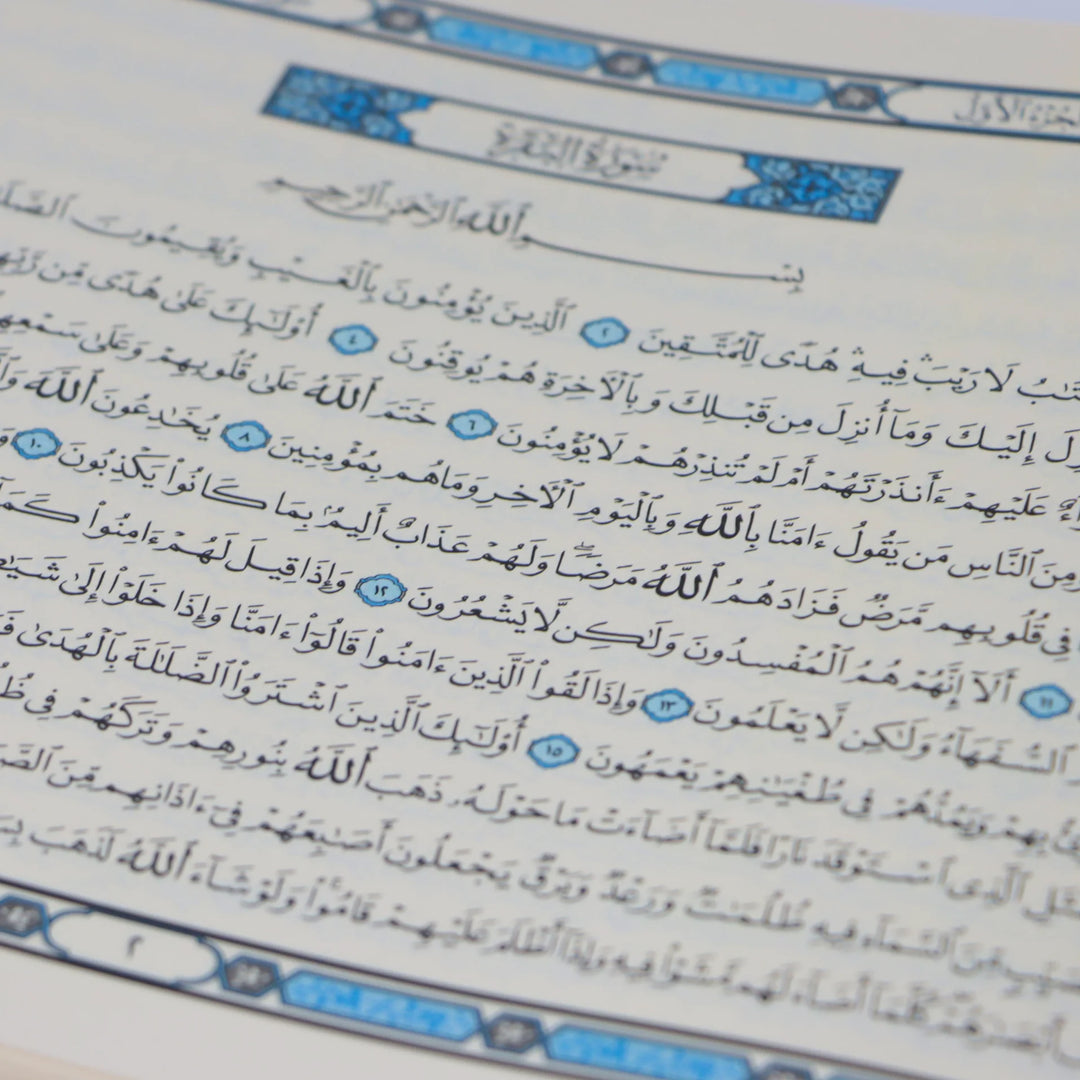 الجزء الأول
سورة البقرة
بسم الله الرحمن الرحيم
لَا رَيْبَ ۛ فِيهِ ۛ هُدًى لِّلْمُتَّقِينَ ٢ ٱلَّذِينَ يُؤْمِنُونَ بِٱلْغَيْبِ وَيُقِيمُونَ
إِلَيْكَ وَمَآ أُنزِلَ مِن قَبْلِكَ وَبِٱلْأٓخِرَةِ هُمْ يُوقِنُونَ ٤ أُو۟لَـٰٓئِكَ عَلَىٰ هُدًى مِّن
عَلَيْهِمْ ءَأَنذَرْتَهُمْ أَمْ لَمْ تُنذِرْهُمْ لَا يُؤْمِنُونَ ٦ خَتَمَ ٱللَّهُ عَلَىٰ قُلُوبِهِمْ وَعَلَىٰ
ٱلنَّاسِ مَن يَقُولُ ءَامَنَّا بِٱللَّهِ وَبِٱلْيَوْمِ ٱلْأٓخِرِ وَمَا هُم بِمُؤْمِنِينَ ٨ يُخَـٰدِعُونَ ٱللَّهَ
فِى قُلُوبِهِم مَّرَضٌ فَزَادَهُمُ ٱللَّهُ مَرَضًا ۖ وَلَهُمْ عَذَابٌ أَلِيمٌۢ بِمَا كَانُوا۟ يَكْذِبُونَ ١٠
١١ أَلَآ إِنَّهُمْ هُمُ ٱلْمُفْسِدُونَ وَلَـٰكِن لَّا يَشْعُرُونَ ١٢ وَإِذَا قِيلَ لَهُمْ ءَامِنُوا۟
ٱلسُّفَهَآءُ وَلَـٰكِن لَّا يَعْلَمُونَ ١٣ وَإِذَا لَقُوا۟ ٱلَّذِينَ ءَامَنُوا۟ قَالُوٓا۟ ءَامَنَّا وَإِذَا خَلَوْا۟ إِلَىٰ
بِهِمْ وَيَمُدُّهُمْ فِى طُغْيَـٰنِهِمْ يَعْمَهُونَ ١٥ أُو۟لَـٰٓئِكَ ٱلَّذِينَ ٱشْتَرَوُا۟ ٱلضَّلَـٰلَةَ بِٱلْهُدَىٰ
ٱلَّذِى ٱسْتَوْقَدَ نَارًا فَلَمَّآ أَضَآءَتْ مَا حَوْلَهُۥ ذَهَبَ ٱللَّهُ بِنُورِهِمْ وَتَرَكَهُمْ فِى
مِّنَ ٱلسَّمَآءِ فِيهِ ظُلُمَـٰتٌ وَرَعْدٌ وَبَرْقٌ يَجْعَلُونَ أَصَـٰبِعَهُمْ فِىٓ ءَاذَانِهِم مِّنَ
أَبْصَـٰرَهُمْ كُلَّمَآ أَضَآءَ لَهُم مَّشَوْا۟ فِيهِ وَإِذَآ أَظْلَمَ عَلَيْهِمْ قَامُوا۟ وَلَوْ شَآءَ ٱللَّهُ لَذَهَبَ
٢